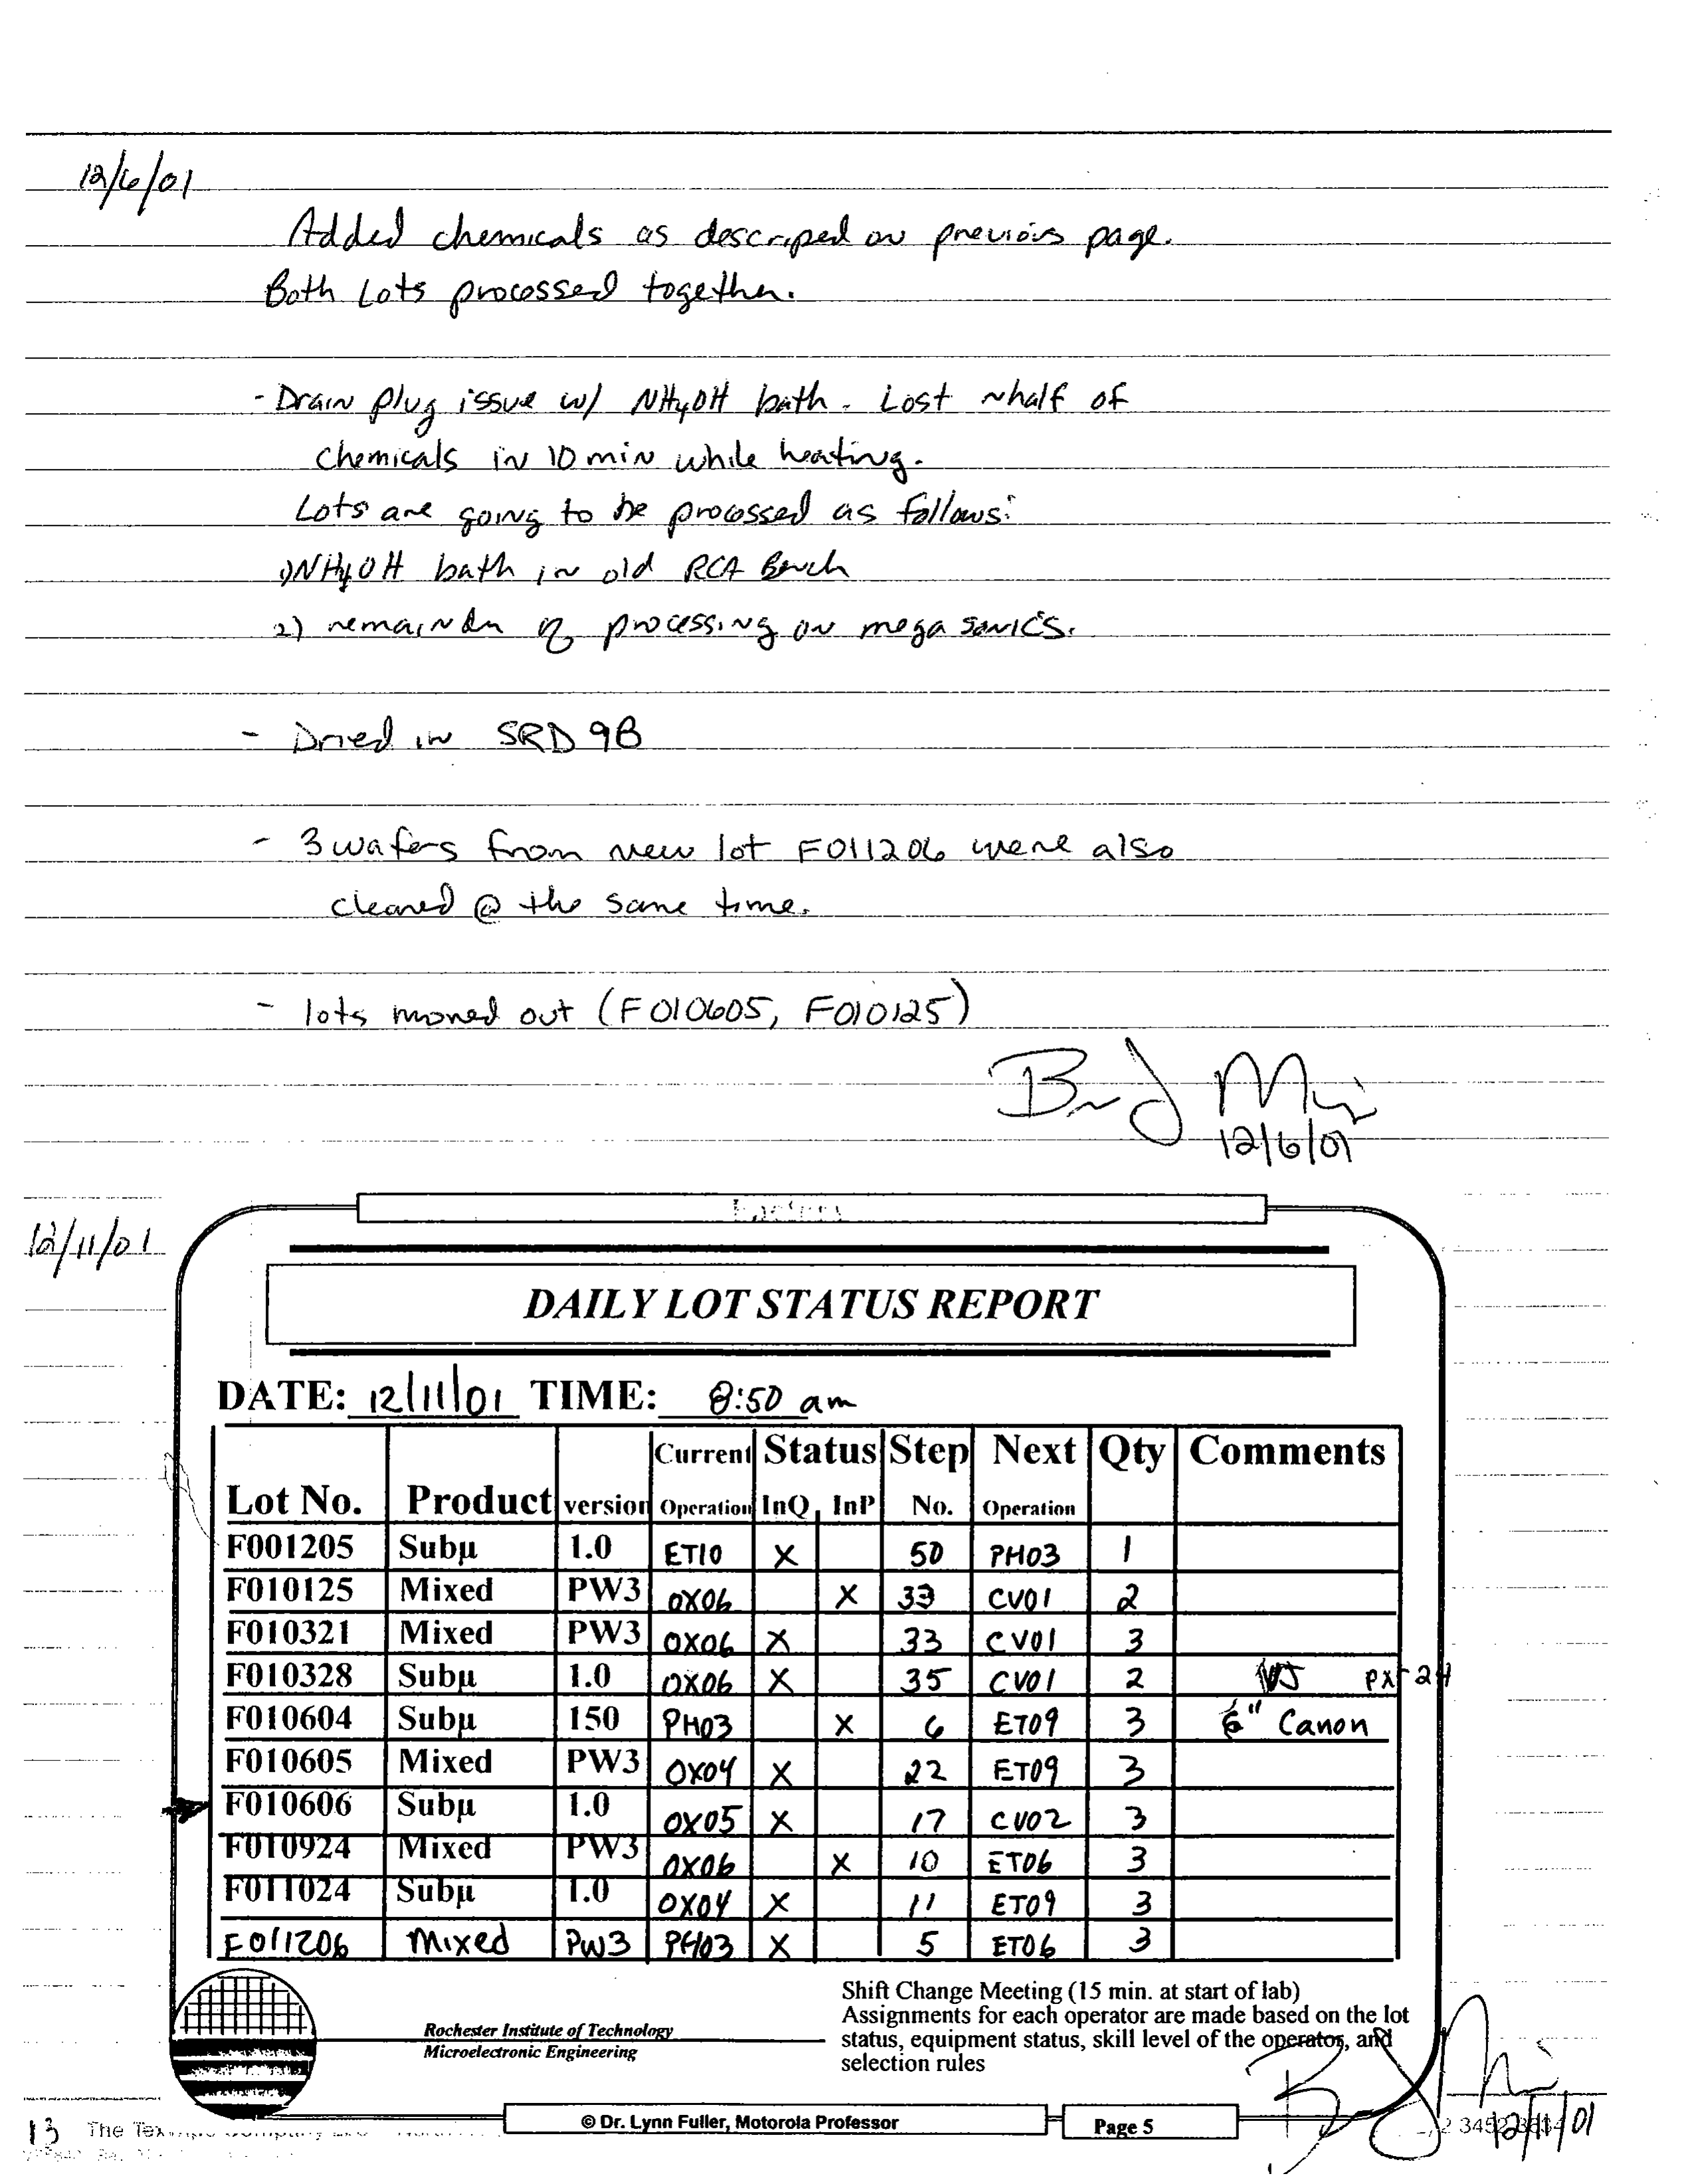 12/6/01
Added chemicals as descriped on previous page.
Both Lots processed together.
- Drain plug issue w/ NH4OH bath. Lost ~half of
chemicals in 10 min while heating.
Lots are going to be processed as follows:
1) NH4OH bath in old RCA Bench
2) remainder of processing on mega sonics.
- Dried in SRD 9B
- 3 wafers from new lot F011206 were also
cleaned @ the same time.
- lots moved out (F010605, F010125)
12/6/01
12/11/01
Factory
DAILY LOT STATUS REPORT
DATE: 12/11/01 TIME: 8:50 am
Lot No. Product version Current Operation Status InQ InP Step No. Next Operation Qty Comments
F001205 Subµ 1.0 ET10 X 50 PH03 1
F010125 Mixed PW3 OX06 X 33 CV01 2
F010321 Mixed PW3 OX06 X 33 CV01 3
F010328 Subµ 1.0 OX06 X 35 CV01 2
F010604 Subµ 150 PH03 X 6 ET09 3 6" Canon
F010605 Mixed PW3 OX04 X 22 ET09 3
F010606 Subµ 1.0 OX05 X 17 CV02 3
F010924 Mixed PW3 OX06 X 10 ET06 3
F011024 Subµ 1.0 OX04 X 11 ET09 3
F011206 Mixed PW3 PH03 X 5 ET06 3
Shift Change Meeting (15 min. at start of lab)
Assignments for each operator are made based on the lot
status, equipment status, skill level of the operator, and
selection rules
Rochester Institute of Technology
Microelectronic Engineering
© Dr. Lynn Fuller, Motorola Professor
Page 5
12/11/01
13 The